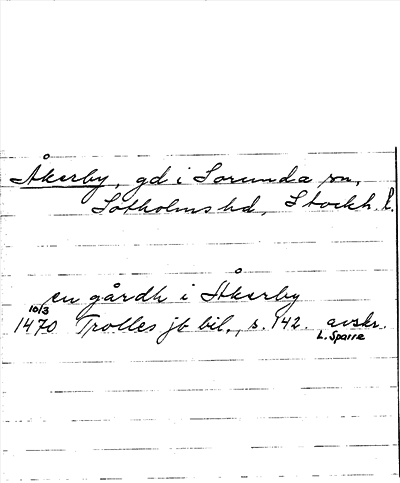 Åkerby, gd i Sorunda sn,
Sotholms hd, Stockh. l.
en gårdh i Åkerby
10/3
1470 Trolles jb bil., s. 142. avskr.
L. Sparre